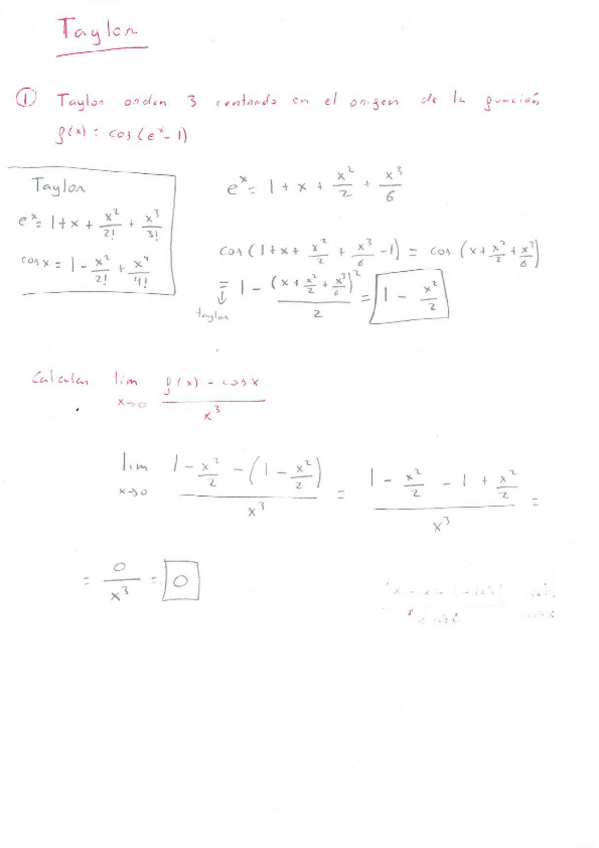 Taylor
① Taylor orden 3 centrado en el origen de la función
f(x) = cos(eˣ - 1)
Taylor
eˣ = 1 + x + x²/2! + x³/3!
cos x = 1 - x²/2! + x⁴/4!
eˣ = 1 + x + x²/2 + x³/6
cos(1 + x + x²/2 + x³/6 - 1) = cos(x + x²/2 + x³/6)
= 1 - (x + x²/2 + x³/6)²/2 = 1 - x²/2
↓
taylor
Calcular lim x→0 (f(x) - cos x)/x³
lim x→0 (1 - x²/2 - (1 - x²/2))/x³ = (1 - x²/2 - 1 + x²/2)/x³ =
= 0/x³ = 0